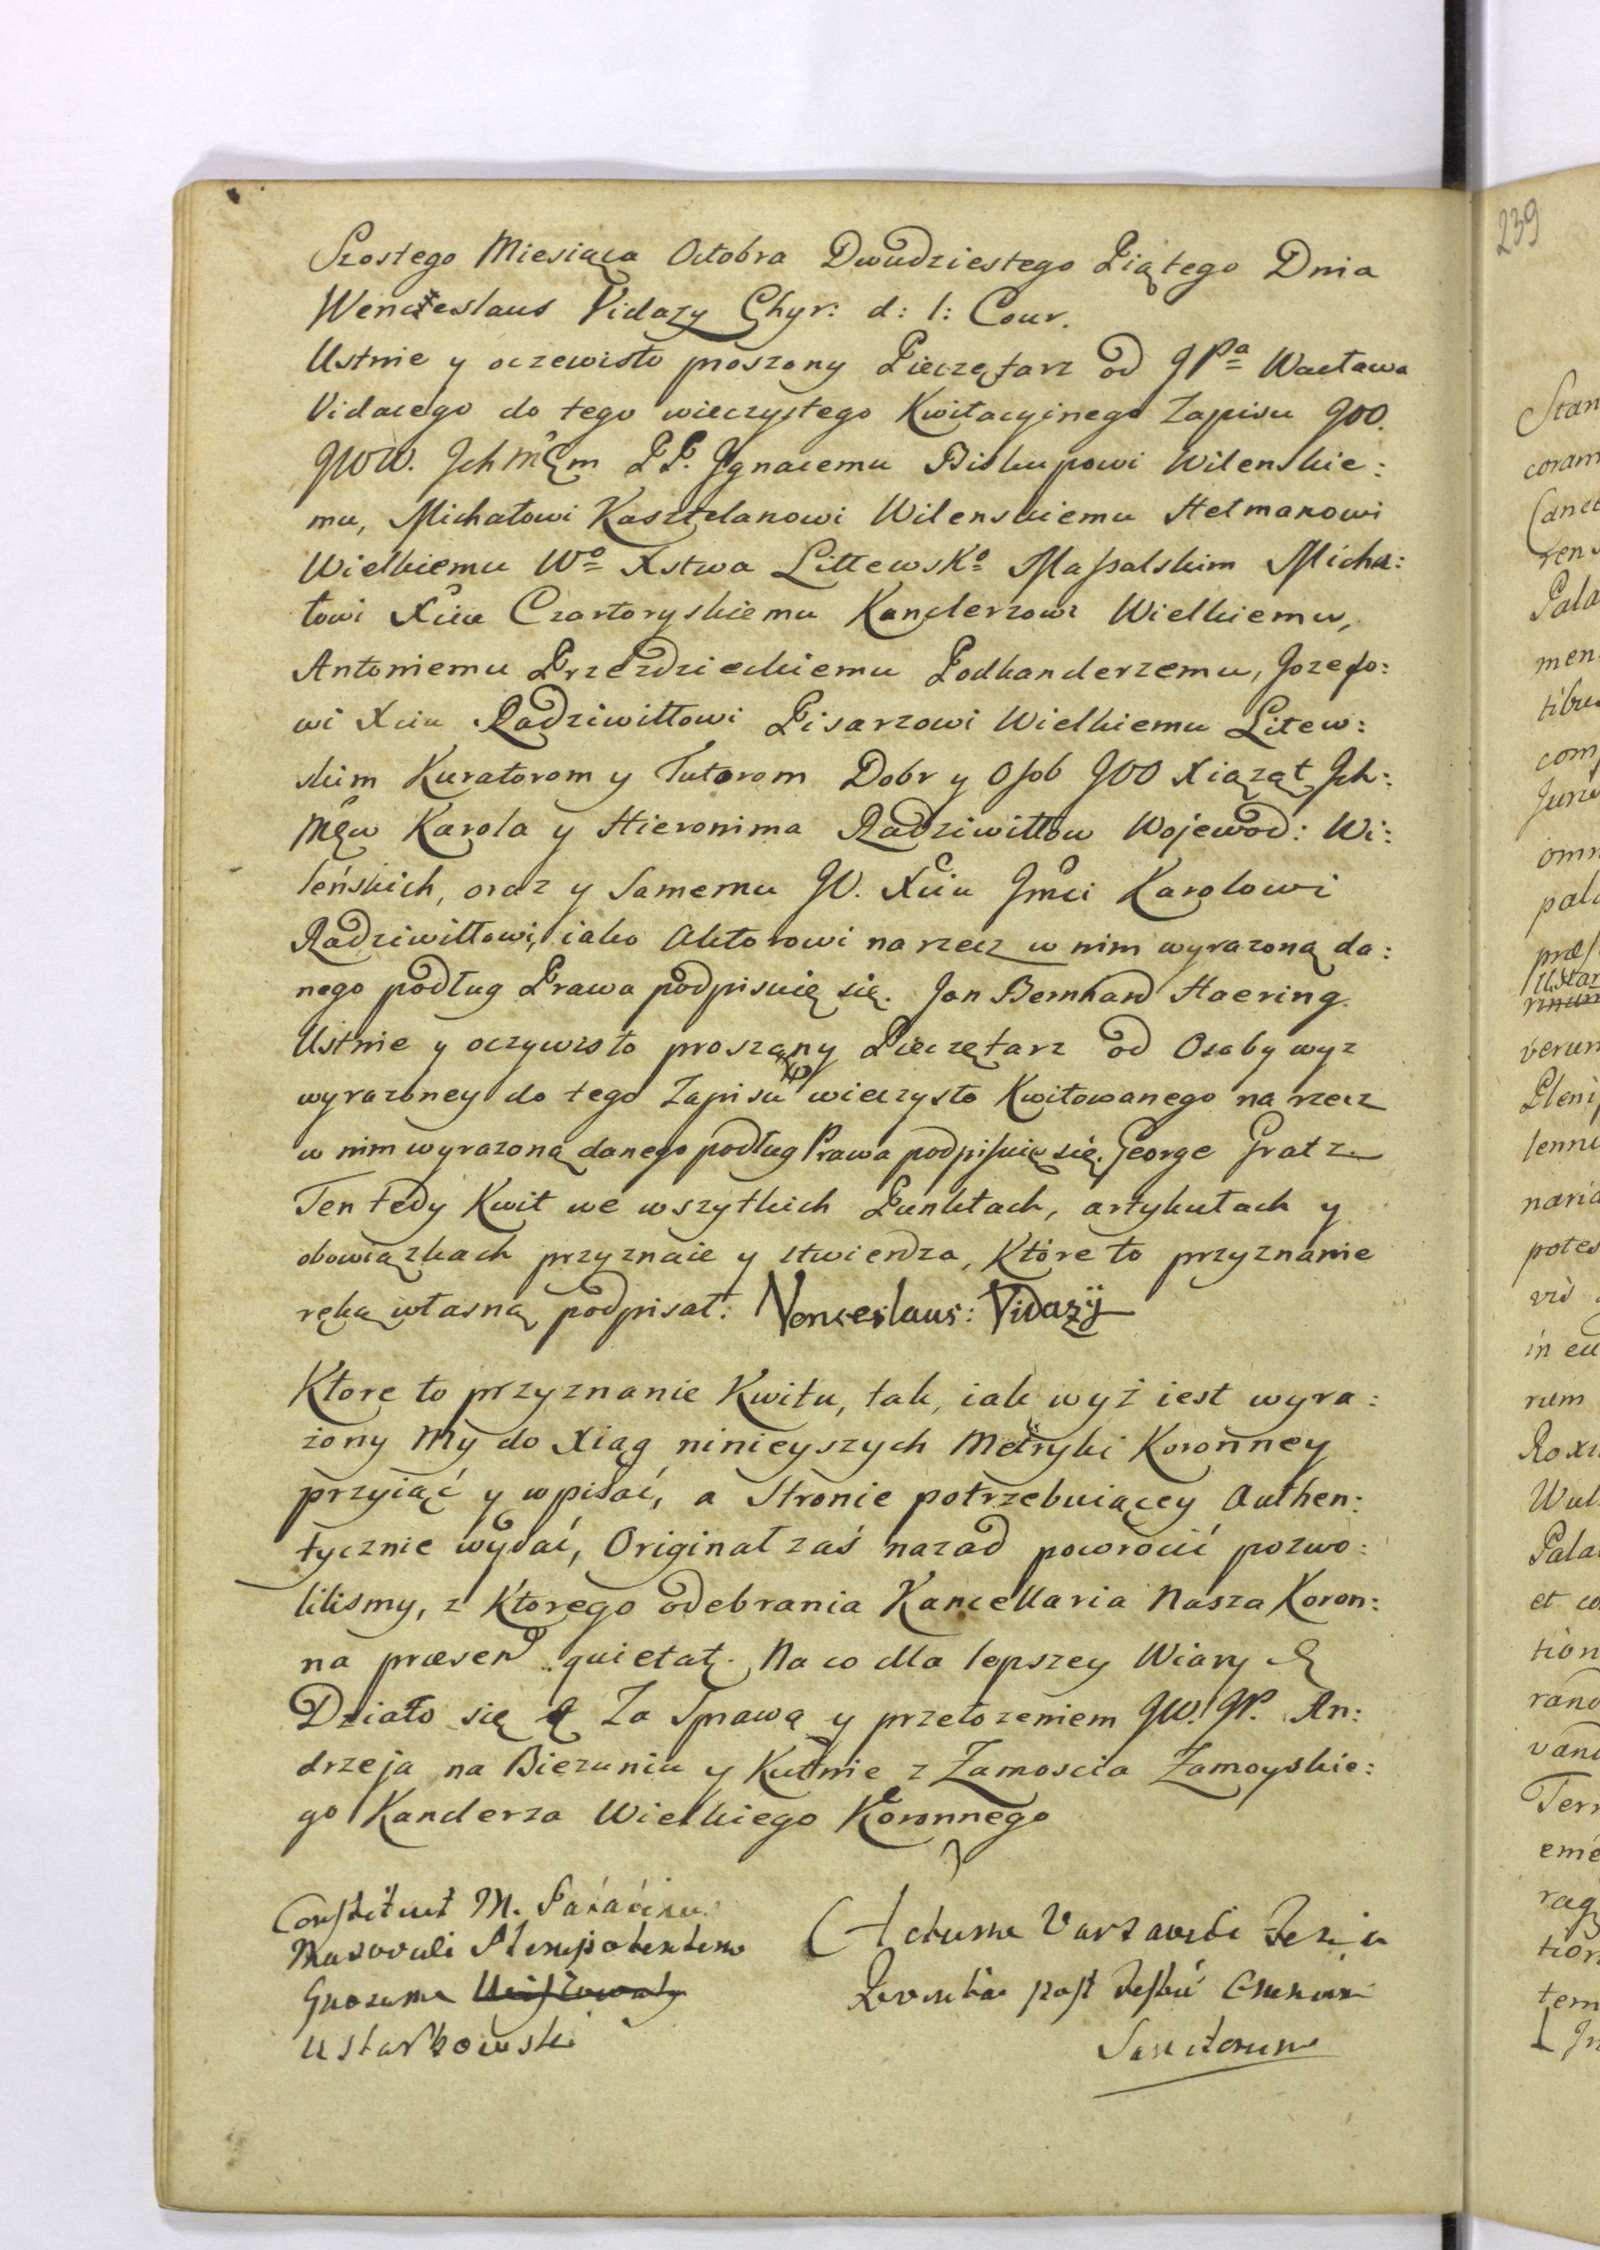 Szostego Miesiąca Octobra Dwudziestego Piątego Dnia
Wenceslaus Vidazy Chyr: d: l: Cour.
Ustnie y oczewisto proszony Pieczętarz od JPa Wacława
Vidacego do tego wieczystego Kwitacyinego Zapisu JOO.
JWW. Ich Mςm PP. Jgnacemu Biskupowi Wilenskie:
mu, Michałowi Kasztelanowi Wilenskiemu Hetmanowi
Wielkiemu Wo Xstwa Littewsko Massalskim Micha:
łowi Xciu Czartoryskiemu Kanclerzowi Wielkiemu,
Antoniemu Przezdzieckiemu Podkanclerzemu, Jozefo:
wi Xciu Radziwiłłowi Pisarzowi Wielkiemu Litew:
skim Kuratorom y Tutorom Dobr y Osob JOO Xiąząt Ich:
Mςw Karola y Hieronima Radziwiłłow Wojewod: Wi:
leńskich, oraz y samemu JO. Xciu Jmci Karolowi
Radziwiłłowi, iako Aktorowi na rzecz w nim wyrazoną da:
nego podług Prawa podpisuię się. Jan Bernhard Haering.
Ustnie y oczywisto proszony Pieczętarz od Osoby wyz
wyrazoney do tego Zapisu wieczysto Kwitowanego na rzecz
w nim wyrazoną danego podług Prawa podpisuię się. George Gratz.
Ten tedy Kwit we wszytkich Punktach, artykułach y
obowiązkach przyznaie y stwierdza, Które to przyznanie
ręką własną podpisał: Venceslaus: Vidazÿ
Ktore to przyznanie Kwitu, tak, iak wyż iest wyra:
żony My do Xiąg ninieyszych Metryki Koronney
przyiąć y wpisać, a Stronie potrzebuiącey Authen:
tycznie wydać, Originał zaś nazad powrocić pozwo:
liliśmy, z Którego odebrania Kancellaria Nasza Koron:
na præsen quietat. Na co dla lepszey Wiary &
Działo się & Za Sprawą y przełozeniem JW. JP. An:
drzeja na Biezuniu y Kutnie z Zamoscia Zamoyskie:
go Kanclerza Wielkiego Koronnego
Constituit M.
Plenipotentem
Gnosum
Ustarbowski
Actum Varsaviæ Feria
post Festum
Sanctorum
239